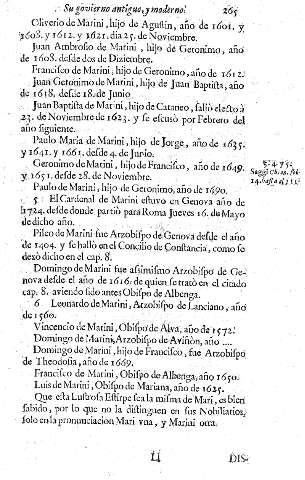 Su govierno antiguo, y moderno. 265
Oliverio de Marini, hijo de Agustin, año de 1601. y
1608. y 1612. y 1621. dia 25. de Noviembre.
Juan Ambrosio de Marini, hijo de Geronimo, año
de 1608. desde dos de Diziembre.
Francisco de Marini, hijo de Geronimo, año de 1612.
Juan Geronimo de Marini, hijo de Juan Baptista, año
de 1618. desde 18. de Junio.
Juan Baptista de Marini, hijo de Cataneo, salió electo à
23. de Noviembre de 1623. y se escusó por Febrero del
año siguiente.
Paulo Maria de Marini, hijo de Jorge, año de 1635.
y 1641. y 1661. desde 4. de Junio.
Geronimo de Marini, hijo de Francisco, año de 1649.
y 1651. desde 28. de Noviembre.
Paulo de Marini, hijo de Geronimo, año de 1490.
5 El Cardenal de Marini estuvo en Genova año de
1724. desde donde partiò para Roma Jueves 16. de Mayo
de dicho año.
Pileo de Marini fue Arzobispo de Genova desde el año
de 1404. y se hallò en el Concilio de Constancia, como se
dexò dicho en el cap. 8.
Domingo de Marini fue assimismo Arzobispo de Ge-
nova desde el año de 1616. de quien se tratò en el citado
cap. 8. aviendo sido antes Obispo de Albenga.
6 Leonardo de Marini, Arzobispo de Lanciano, año
de 1560.
Vincencio de Marini, Obispo de Alva, año de 1572.
Domingo de Marini, Arzobispo de Aviñon, año ....
Domingo de Marini, hijo de Francisco, fue Arzobispo
de Theodosia, año de 1669.
Francisco de Marini, Obispo de Albenga, año 1650.
Luis de Marini, Obispo de Mariana, año de 1625.
Que esta Lustrosa Estirpe sea la misma de Mari, es bien
sabido, por lo que no la distinguen en sus Nobiliarios,
solo en la pronunciacion Mari vna, y Marini otra.
Ll DIS-